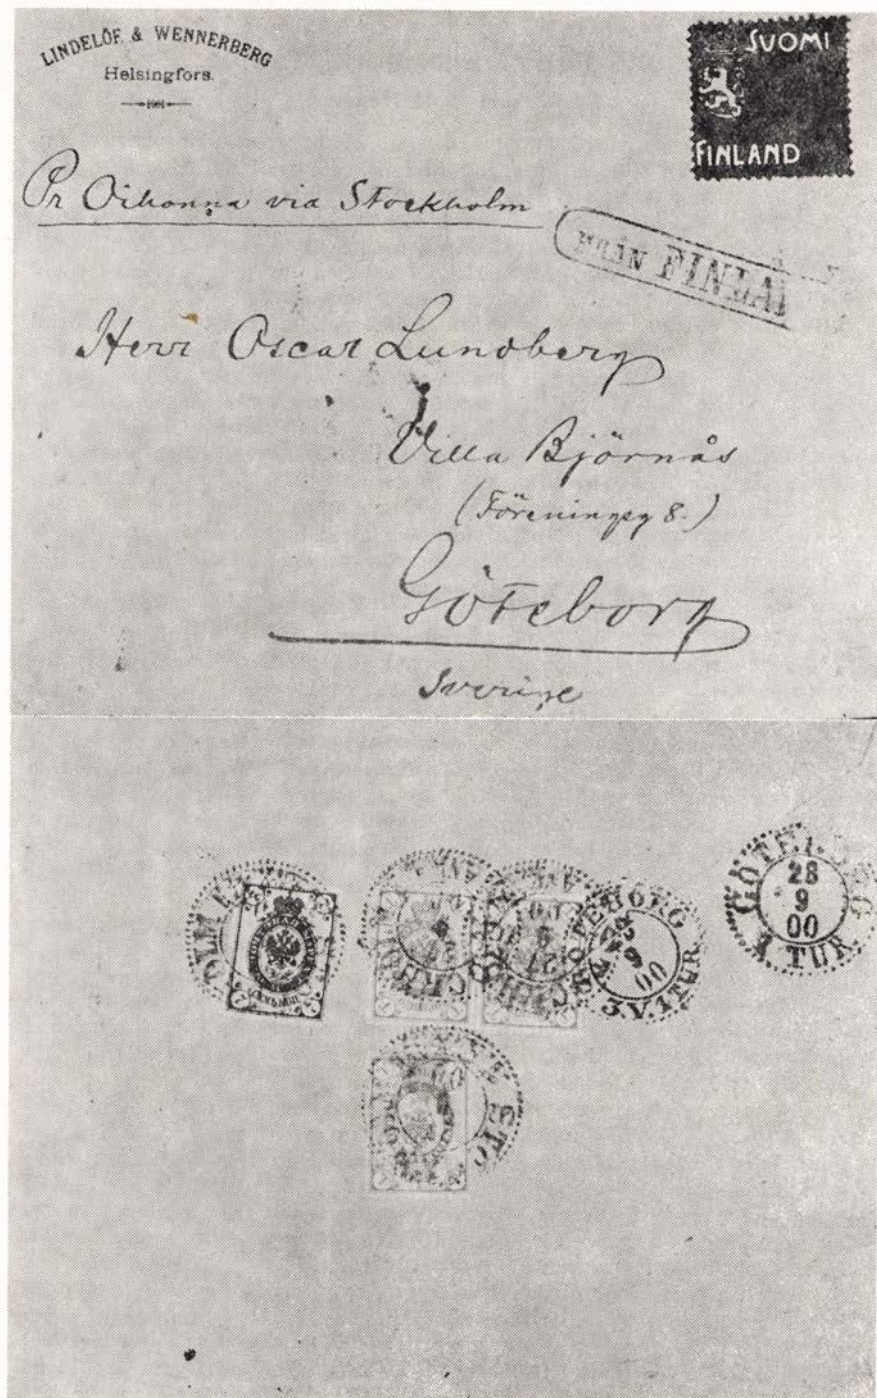 LINDELÖF & WENNERBERG
Helsingfors.
SUOMI
FINLAND
Pr Oihonna via Stockholm
FRÅN FINLA
Herr Oscar Lundberg
Villa Björnås
(Föreningsg 8.)
Göteborg
Sverige
GÖTEBORG
28
9
00
1 TUR
GÖTEBORG
28
9
00
3.V.1TUR.
27
9
00